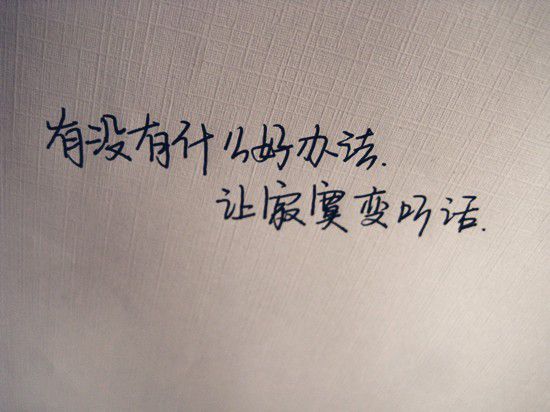 有没有什么好办法.
让寂寞变听话.